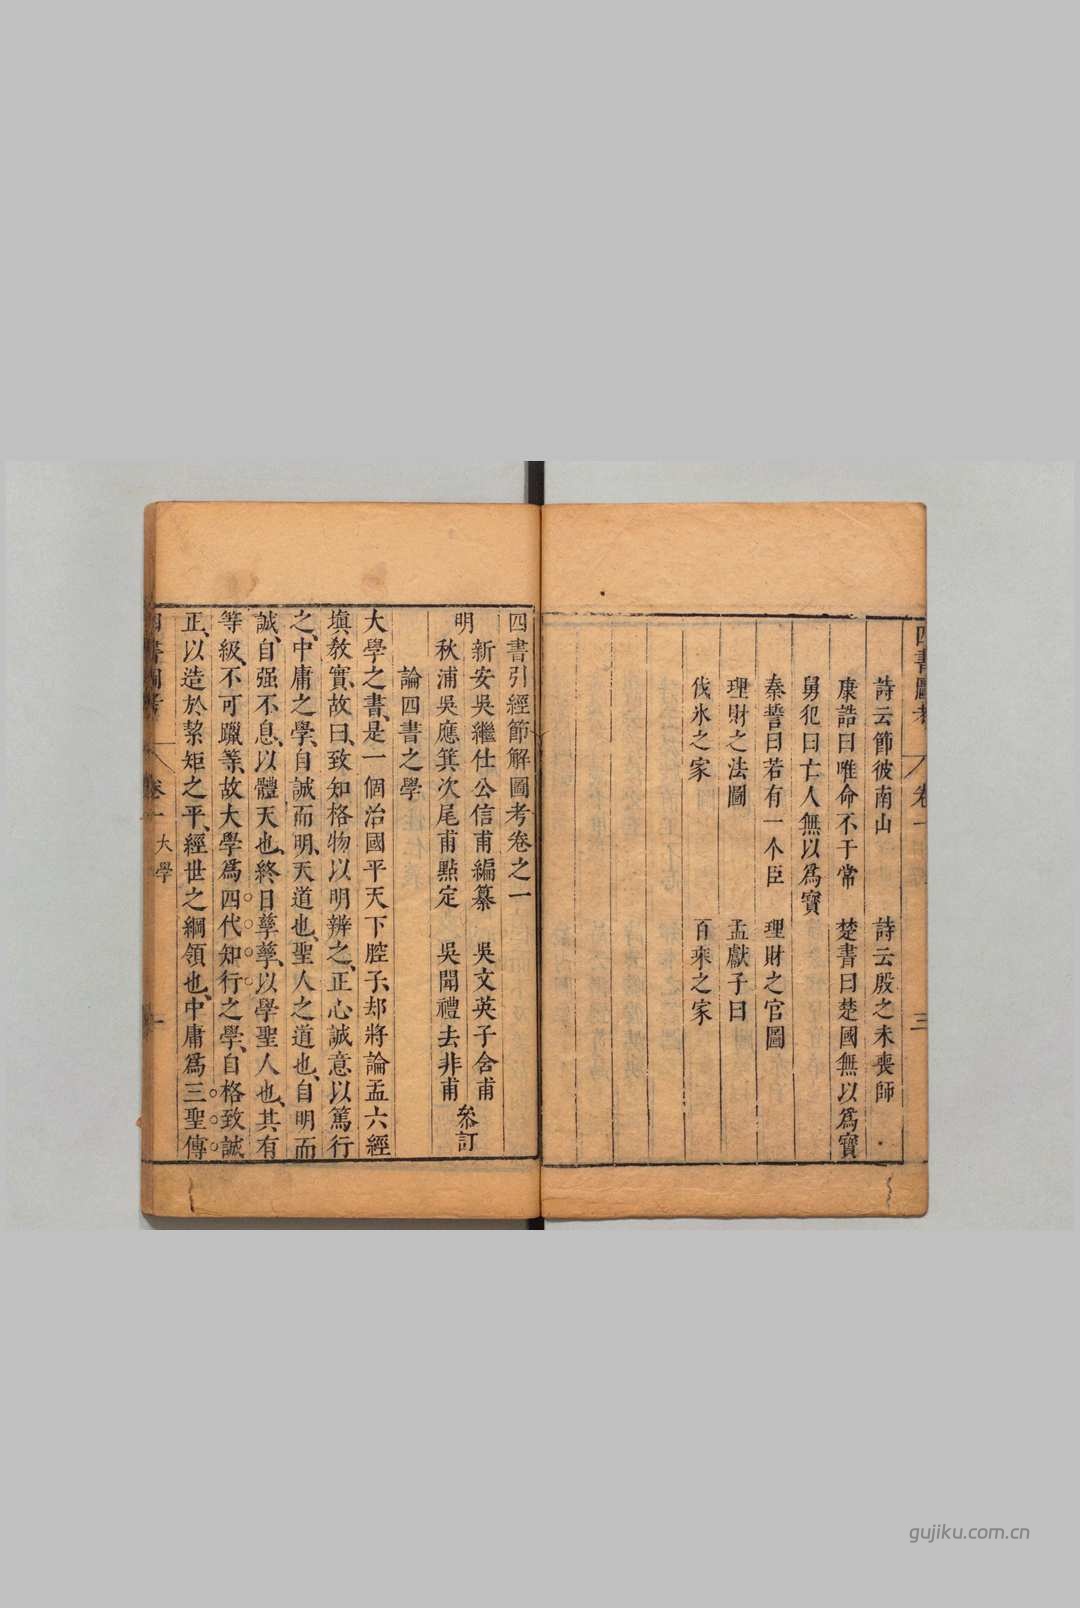 四書圖考 卷一 三
詩云節彼南山 詩云殷之未喪師
康誥曰唯命不于常 楚書曰楚國無以爲寶
舅犯曰亡人無以爲寶
秦誓曰若有一个臣 理財之官圖
理財之法圖 孟獻子曰
伐氷之家 百乘之家
四書引經節解圖考卷之一
明
新安吳繼仕公信甫編纂 吳文英子含甫
秋浦吳應箕次尾甫點定 吳聞禮去非甫
叅訂
論四書之學
大學之書、是一個治國平天下腔子、却將論孟六經
塡教實、故曰、致知格物以明辨之、正心誠意以篤行
之、中庸之學、自誠而明、天道也、聖人之道也、自明而
誠、自强不息、以體天也、終日孳孳、以學聖人也、其有
等級、不可躐等、故大學爲四代知行之學、自格致誠
正、以造於絜矩之平、經世之綱領也、中庸爲三聖傳
四書圖考 卷一 大學 一
gujiku.com.cn